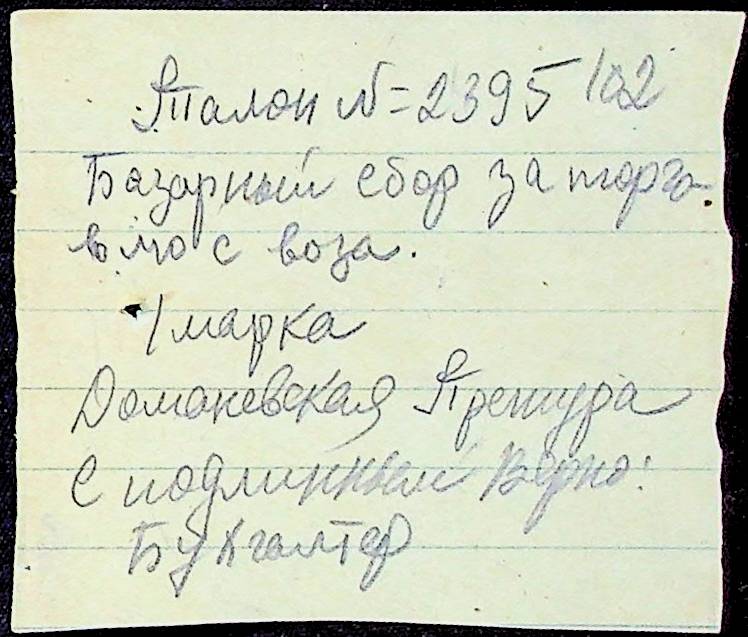 Талон N=2395102
Базарный сбор за торго-
влю с воза.
1 марка
Доманевская Претура
С подлинным Верно:
Бухгалтер